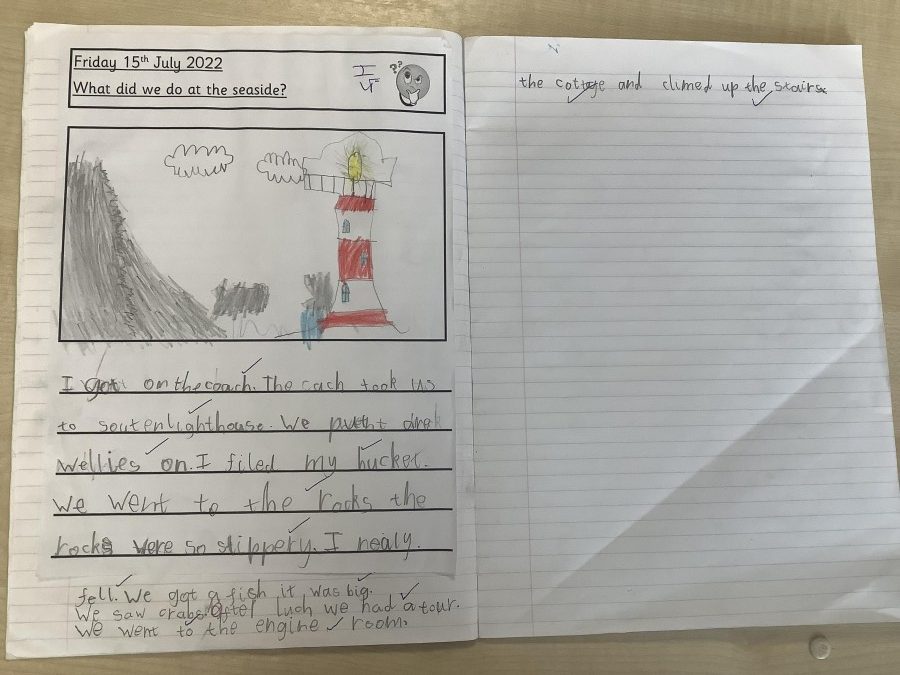 Friday 15th July 2022
What did we do at the seaside?
I
??
I got on the coach. The cach took us
to souten lighthouse. We put
wellies on. I filed my bucket.
We went to the rocks the
rocks were so slippery. I nealy.
fell. We got a fish it was big.
We saw crabs. After luch we had a tour.
We went to the engine room.
the cottage and climed up the stairs.